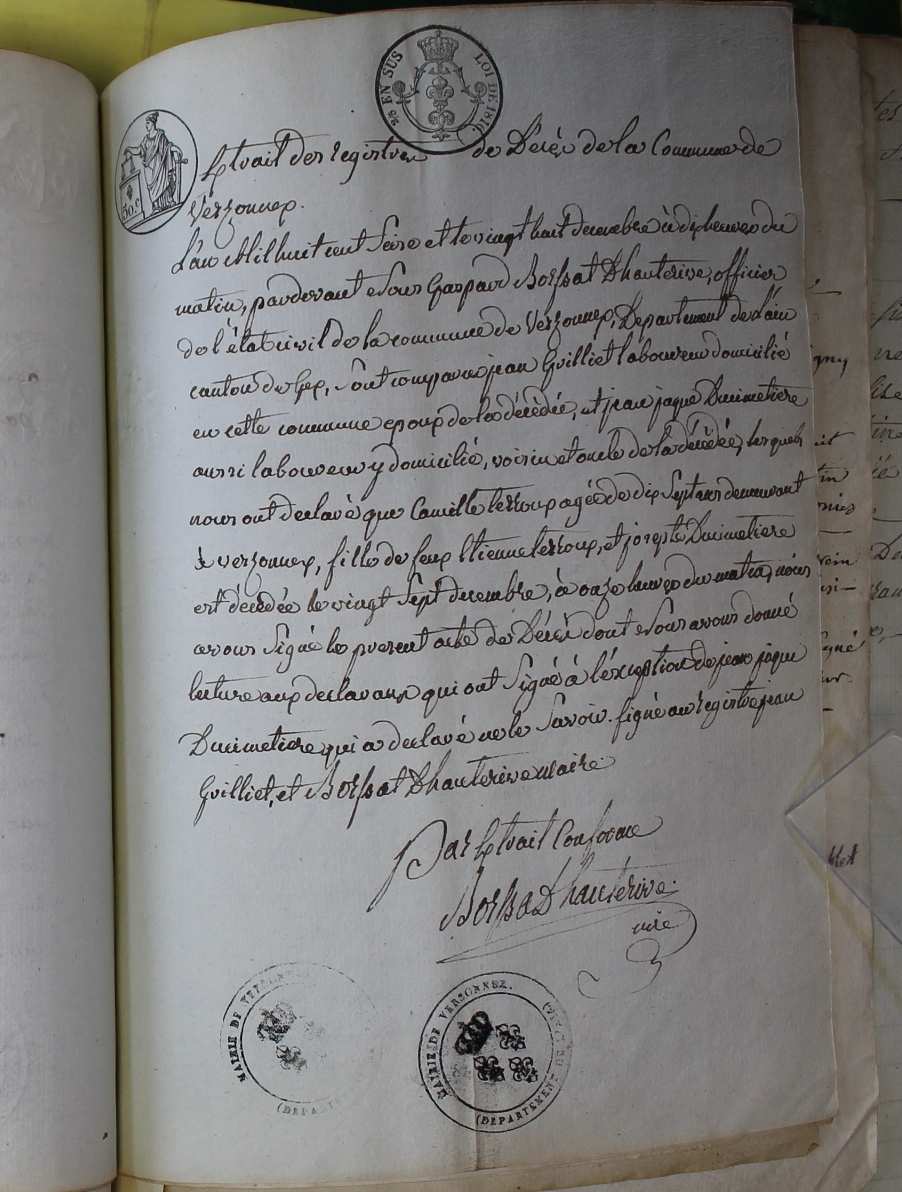 25 EN SUS LOI DE 1816.
50.c
Extrait des registres de Décès de la Commune de
Versonnex.
L'an Mil huit cent Seize et le vingt huit decembre à dix heures du
matin, pardevant Nous Gaspard Borssat Dhauterive, officier
de l'état civil de la commune de Versonnex, Departement de l'ain
canton de Gex, Sont comparus jean Gvilliet laboureur domicilié
en cette commune epoux de la décédée, et jean jaque Ducimetiere
aussi laboureur y domicilié, voisin et oncle de la décédée, lesquels
nous ont declaré que Camille agée de dix Sept ans demeurant
à versonnex, fille de feux Etienne et josephte Ducimetiere
est décédée le vingt Sept decembre, à onze heures du matin, nous
avons Signé le present acte de Décès dont Nous avons donné
lecture aux declarans qui ont Signé à l'éxception de jean jaque
Ducimetiere qui a declaré ne le Savoir. Signé au registre jean
Gvilliet, et Borssat Dhauterive maire
Par Extrait Conforme
Borssat Dhauterive.
mre
MAIRIE DE VERSONNEX
(DEPARTE
MAIRIE DE VERSONNEX.
(DEPARTEMENT DE L'AIN)